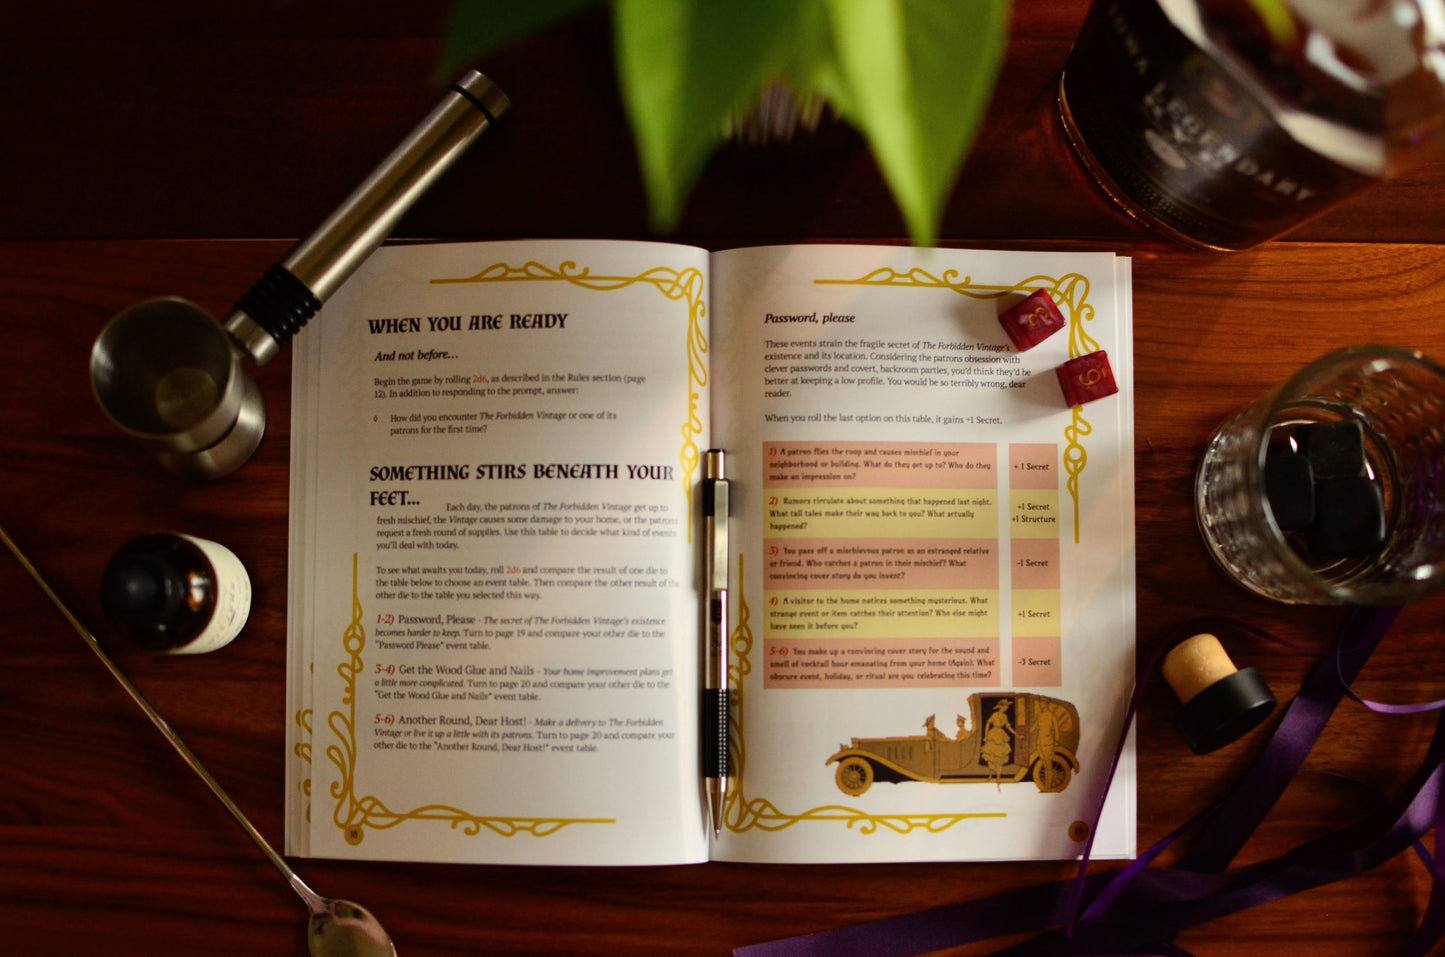 WHEN YOU ARE READY
And not before...
Begin the game by rolling 2d6, as described in the Rules section (page
12). In addition to responding to the prompt, answer:
◊ How did you encounter The Forbidden Vintage or one of its
patrons for the first time?
SOMETHING STIRS BENEATH YOUR
FEET...
Each day, the patrons of The Forbidden Vintage get up to
fresh mischief, the Vintage causes some damage to your home, or the patrons
request a fresh round of supplies. Use this table to decide what kind of events
you'll deal with today.
To see what awaits you today, roll 2d6 and compare the result of one die to
the table below to choose an event table. Then compare the other result of the
other die to the table you selected this way.
1-2) Password, Please - The secret of The Forbidden Vintage's existence
becomes harder to keep. Turn to page 19 and compare your other die to the
"Password Please" event table.
3-4) Get the Wood Glue and Nails - Your home improvement plans get
a little more complicated. Turn to page 20 and compare your other die to the
"Get the Wood Glue and Nails" event table.
5-6) Another Round, Dear Host! - Make a delivery to The Forbidden
Vintage or live it up a little with its patrons. Turn to page 20 and compare your
other die to the "Another Round, Dear Host!" event table.
18
Password, please
These events strain the fragile secret of The Forbidden Vintage's
existence and its location. Considering the patrons obsession with
clever passwords and covert, backroom parties, you'd think they'd be
better at keeping a low profile. You would be so terribly wrong, dear
reader.
When you roll the last option on this table, it gains +1 Secret.
1) A patron flies the coop and causes mischief in your
neighborhood or building. What do they get up to? Who do they
make an impression on?
+ 1 Secret
2) Rumors circulate about something that happened last night.
What tall tales make their way back to you? What actually
happened?
+1 Secret
+1 Structure
3) You pass off a mischievous patron as an estranged relative
or friend. Who catches a patron in their mischief? What
convincing cover story do you invent?
-1 Secret
4) A visitor to the home notices something mysterious. What
strange event or item catches their attention? Who else might
have seen it before you?
+1 Secret
5-6) You make up a convincing cover story for the sound and
smell of cocktail hour emanating from your home (Again). What
obscure event, holiday, or ritual are you celebrating this time?
-3 Secret
19
IOWA LEGENDARY